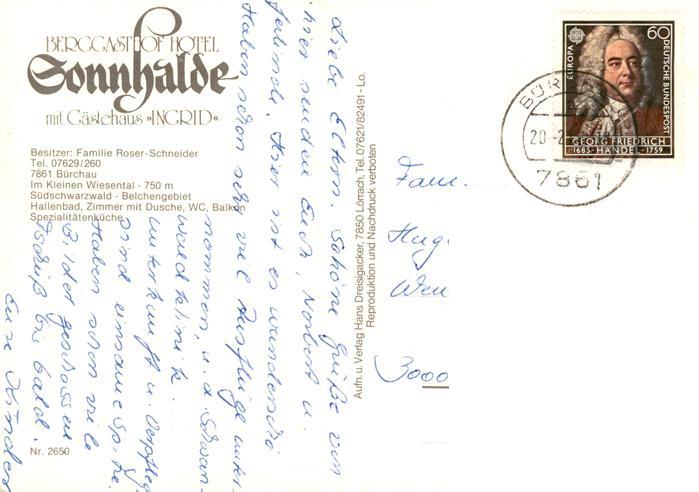 BERGGASTHOF HOTEL
Sonnhalde
mit Gästehaus »INGRID«
Besitzer: Familie Roser-Schneider
Tel. 07629/260
7861 Bürchau
Im Kleinen Wiesental - 750 m
Südschwarzwald - Belchengebiet
Hallenbad, Zimmer mit Dusche, WC, Balkon
Spezialitätenküche
Nr. 2650
Liebe Eltern. Schöne Grüße von
hier senden Euch, Norbert u.
Hier ist es wunderschö
Haben schon sehr viel Ausflüge unter-
nommen, u. a. Schwarz-
waldklinik.
Unterkunft u. Verpfleg
sind einsame Spitze.
Haben schon viele
Bilder geschossen
Tschüß bis bald.
Eure Kinder
Aufn. u. Verlag Hans Dreisigacker, 7850 Lörrach, Tel. 07621/82491 - Lo.
Reproduktion und Nachdruck verboten
EUROPA
60
DEUTSCHE BUNDESPOST
GEORG FRIEDRICH
1685 HÄNDEL 1759
20
7861
Fam.
3000